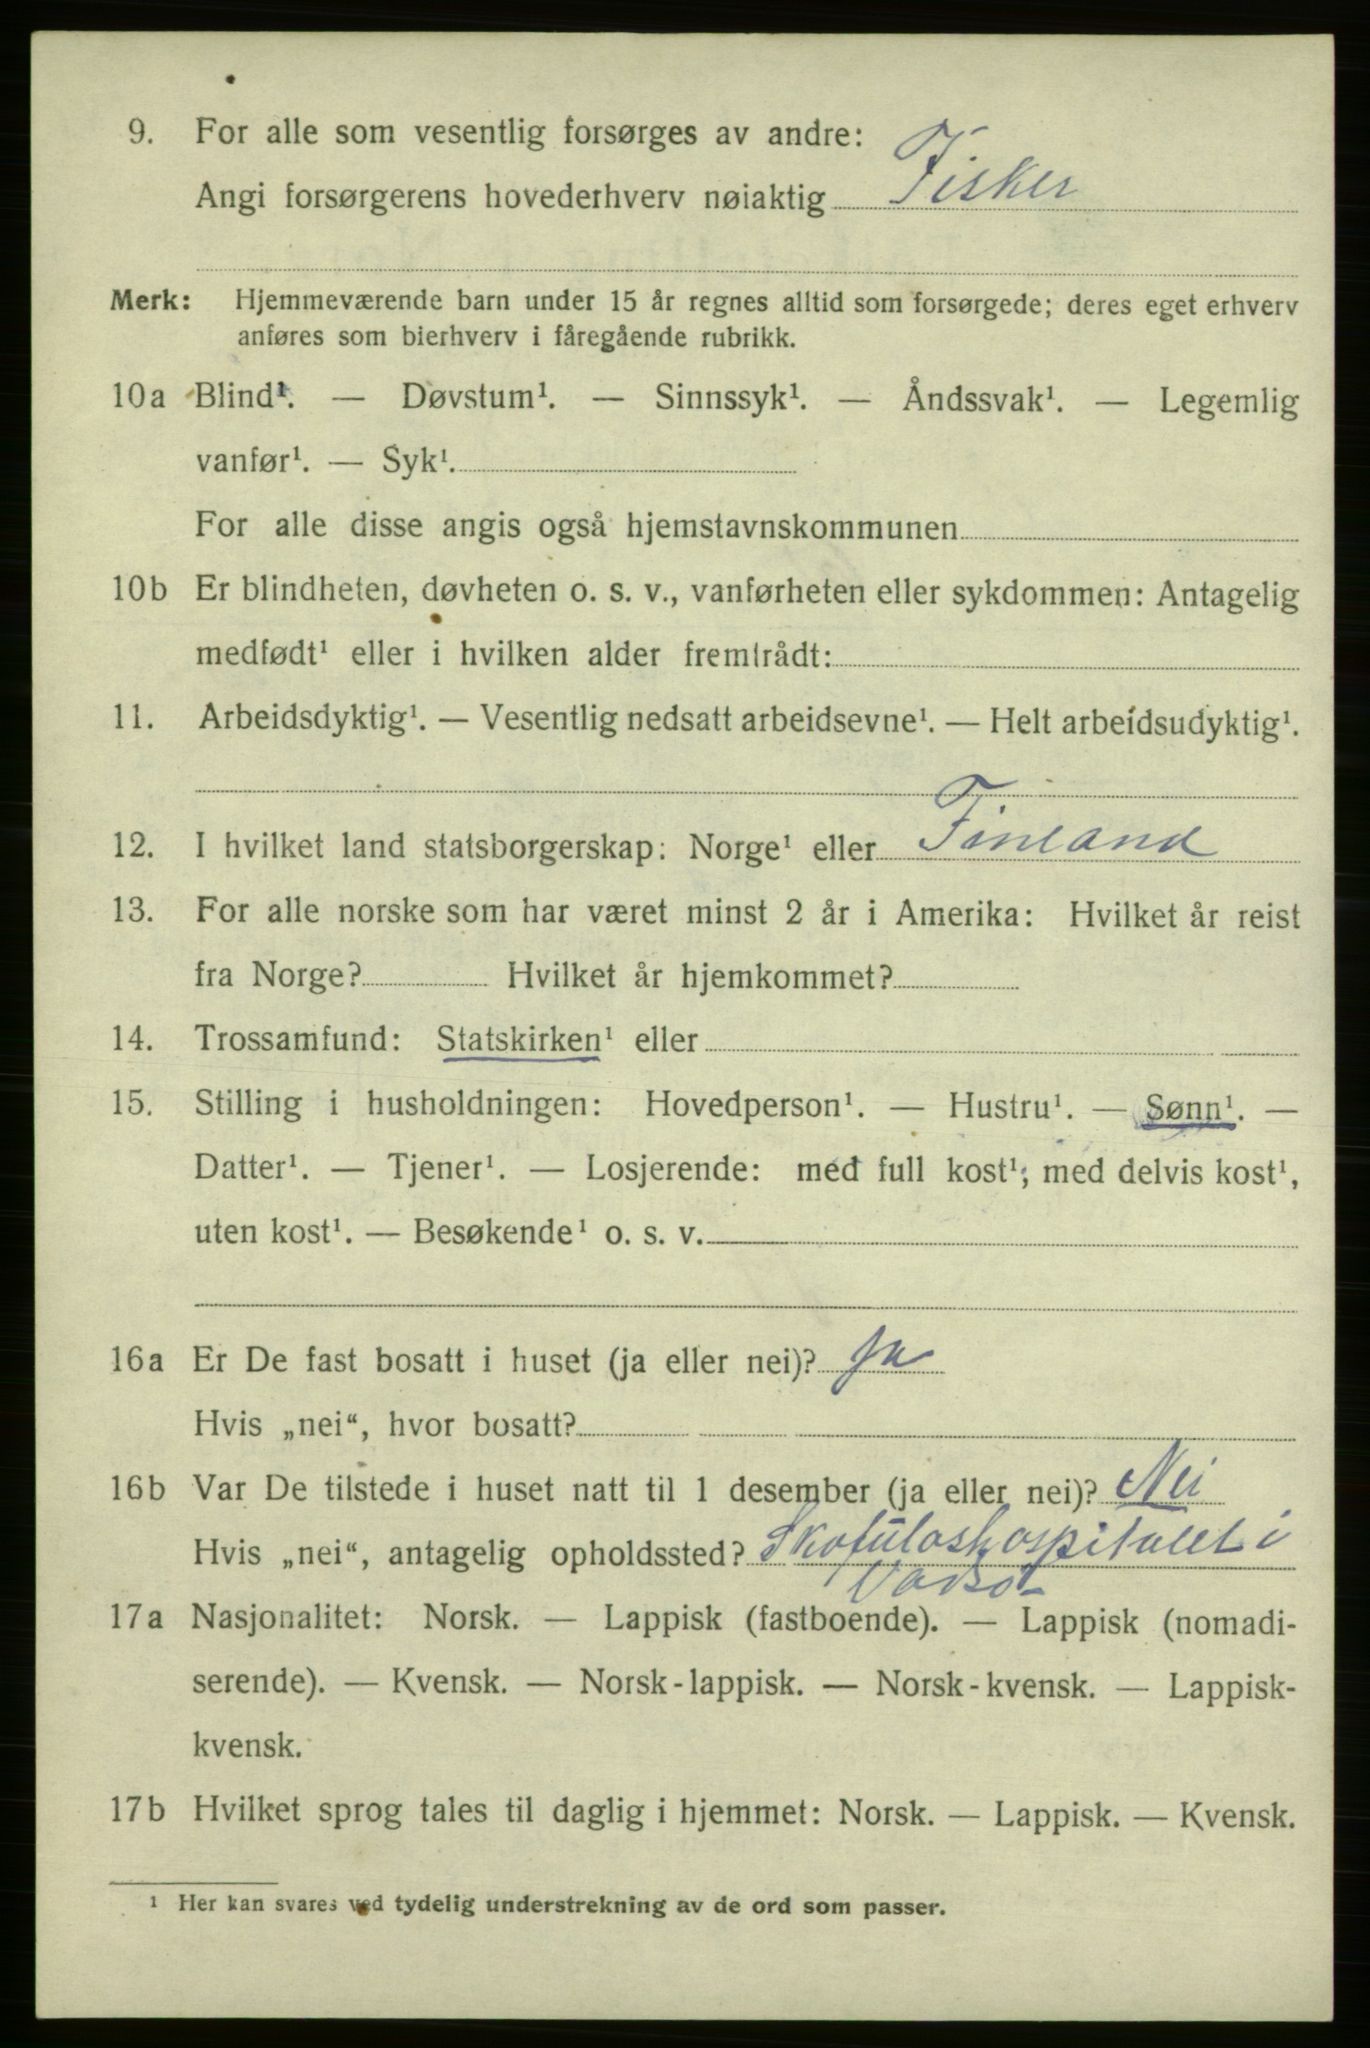 9. For alle som vesentlig forsørges av andre:
Angi forsørgerens hovederhverv nøiaktig Fisker
Merk: Hjemmeværende barn under 15 år regnes alltid som forsørgede; deres eget erhverv
anføres som bierhverv i fåregående rubrikk.
10a Blind¹. — Døvstum¹. — Sinnssyk¹. — Åndssvak¹. — Legemlig
vanfør¹. — Syk¹.
For alle disse angis også hjemstavnskommunen
10b Er blindheten, døvheten o. s. v., vanførheten eller sykdommen: Antagelig
medfødt¹ eller i hvilken alder fremtrådt:
11. Arbeidsdyktig¹. — Vesentlig nedsatt arbeidsevne¹. — Helt arbeidsudyktig¹.
12. I hvilket land statsborgerskap: Norge¹ eller Finland
13. For alle norske som har været minst 2 år i Amerika: Hvilket år reist
fra Norge? Hvilket år hjemkommet?
14. Trossamfund: Statskirken¹ eller
15. Stilling i husholdningen: Hovedperson¹. — Hustru¹. — Sønn¹. —
Datter¹. — Tjener¹. — Losjerende: med full kost¹; med delvis kost¹,
uten kost¹. — Besøkende¹ o. s. v.
16a Er De fast bosatt i huset (ja eller nei)? ja
Hvis „nei“, hvor bosatt?
16b Var De tilstede i huset natt til 1 desember (ja eller nei)? Nei
Hvis „nei“, antagelig opholdssted? Skofuloshospitalet i
Vadsø
17a Nasjonalitet: Norsk. — Lappisk (fastboende). — Lappisk (nomadi-
serende). — Kvensk. — Norsk-lappisk. — Norsk-kvensk. — Lappisk-
kvensk.
17b Hvilket sprog tales til daglig i hjemmet: Norsk. — Lappisk. — Kvensk.
¹ Her kan svares ved tydelig understrekning av de ord som passer.